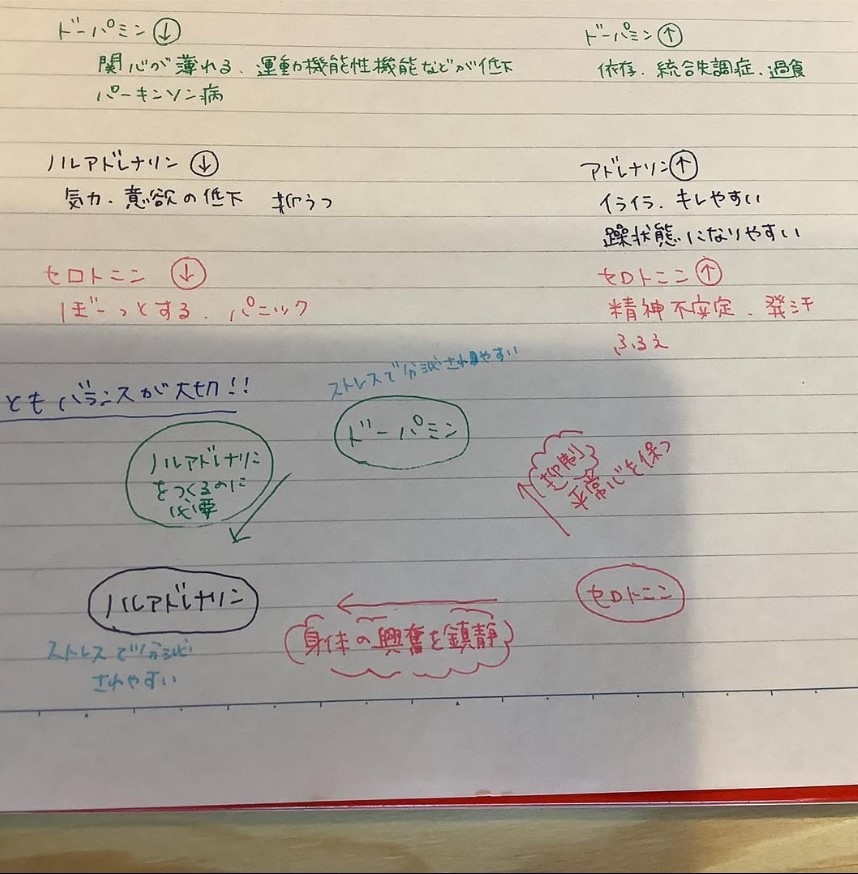 ドーパミン↓
関心が薄れる、運動機能性機能などが低下
パーキンソン病
ドーパミン↑
依存、統合失調症、過食
ノルアドレナリン↓
気力、意欲の低下 抑うつ
アドレナリン↑
イライラ、キレやすい
躁状態になりやすい
セロトニン↓
ぼーっとする、パニック
セロトニン↑
精神不安定、発汗
ふるえ
ともバランスが大切!!
ストレスで分泌されやすい
ドーパミン
ノルアドレナリン
をつくるのに
必要
抑制
平常心を保つ
ノルアドレナリン
セロトニン
身体の興奮を鎮静
ストレスで分泌
されやすい